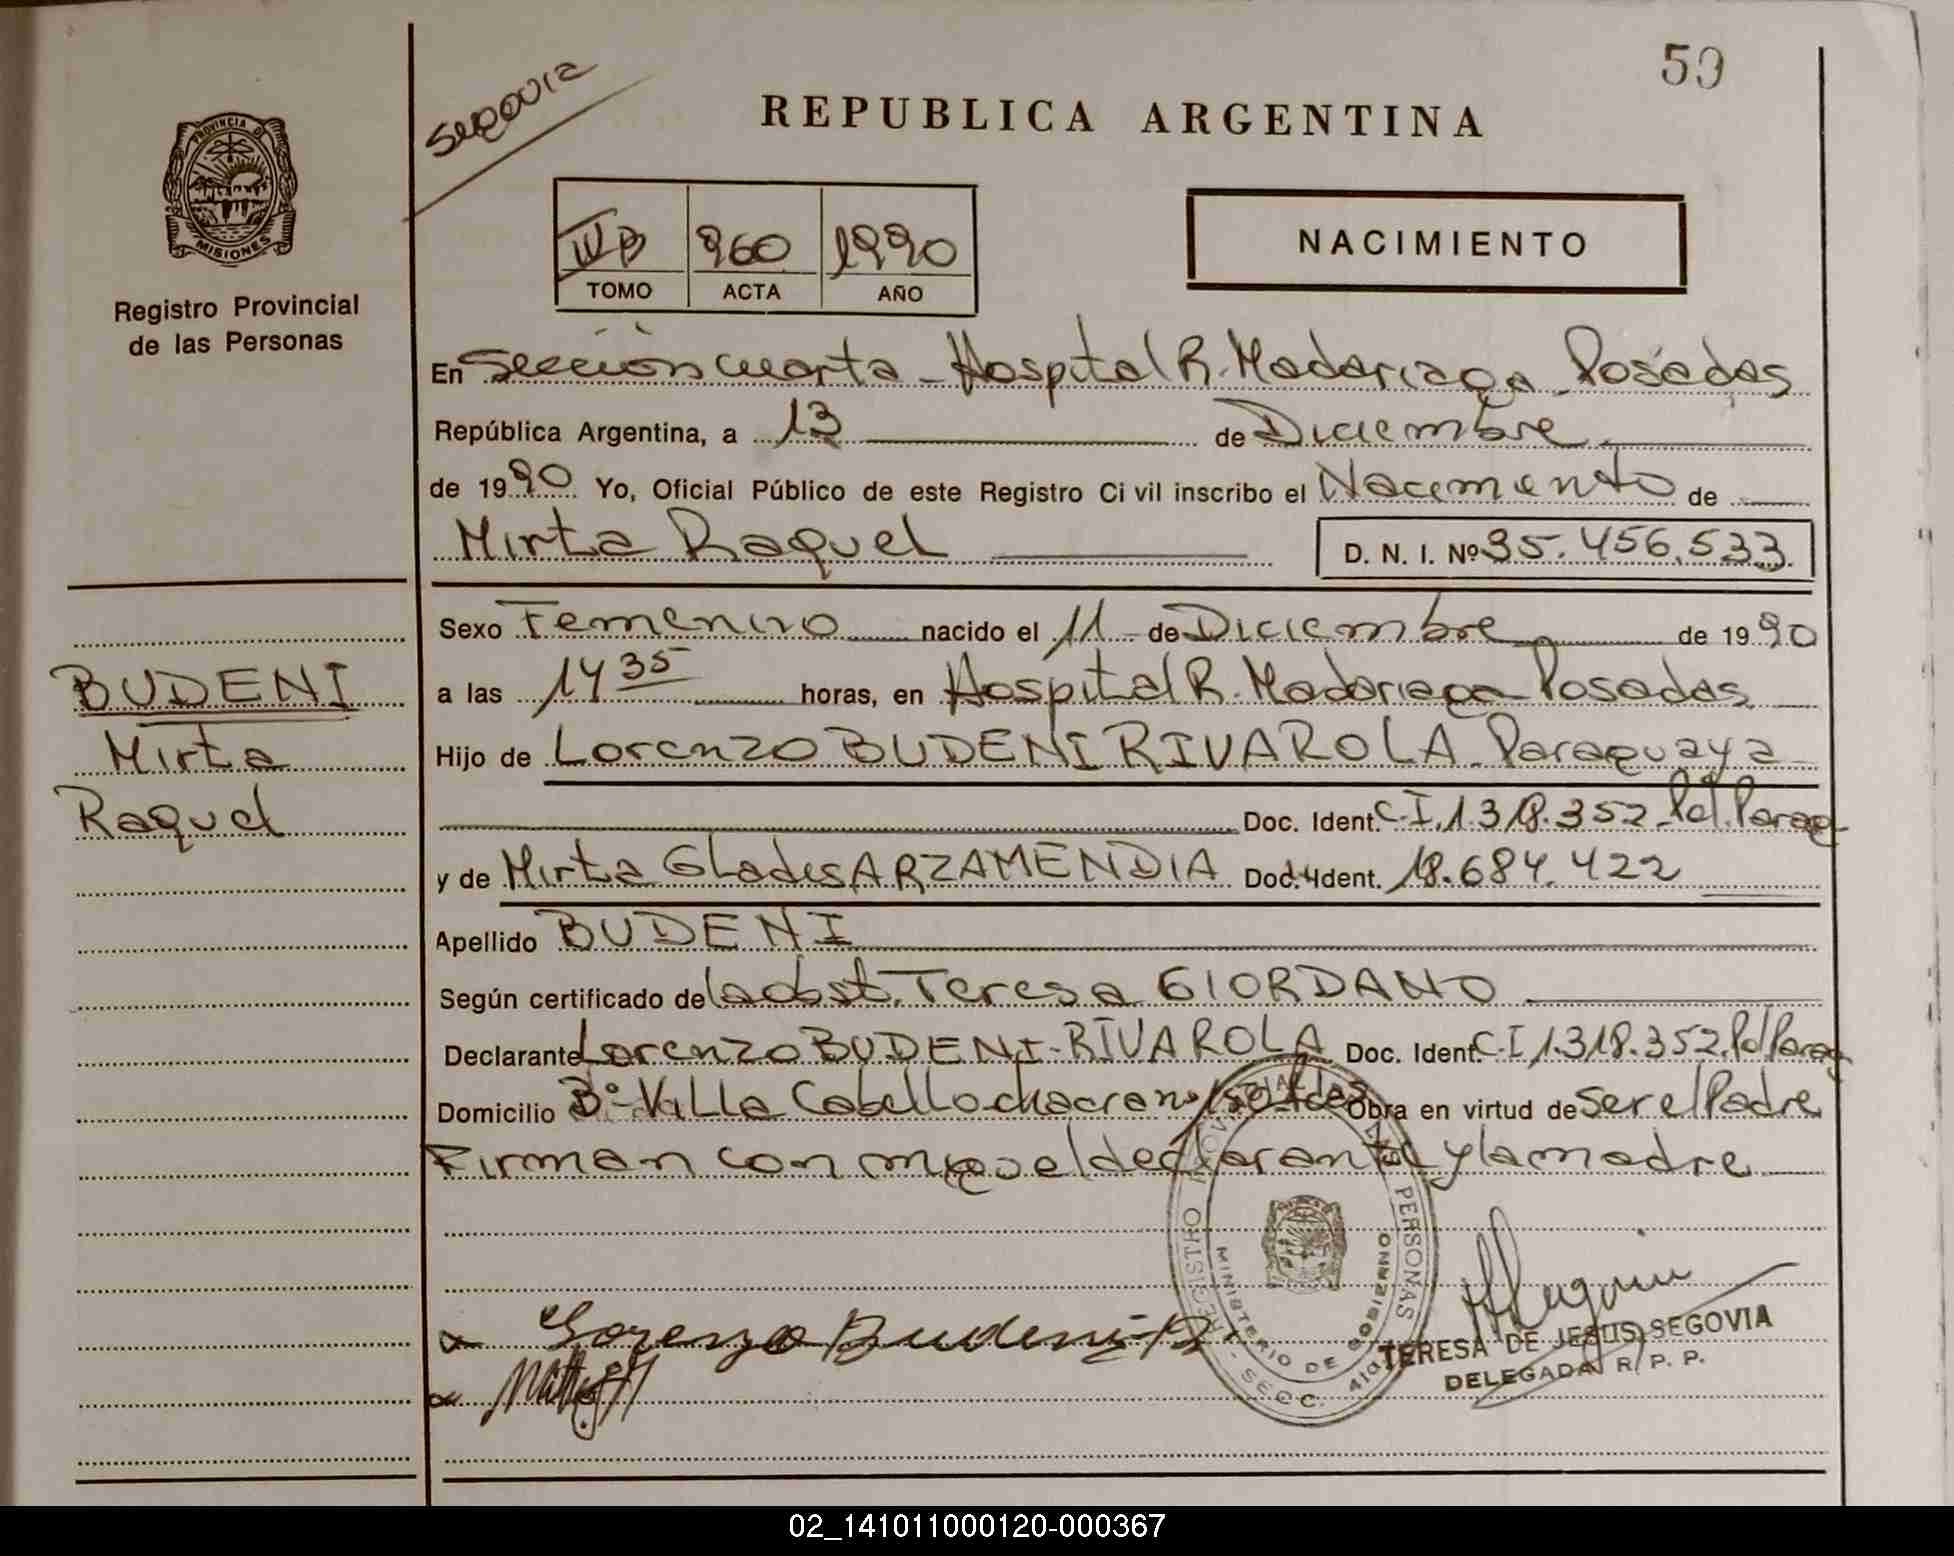 59
Segovia
REPUBLICA ARGENTINA
PROVINCIA DE
MISIONES
Registro Provincial
de las Personas
960 1990
TOMO ACTA AÑO
NACIMIENTO
En Sección cuarta - Hospital R. Madariaga - Posadas
República Argentina, a 13 de Diciembre
de 1990 Yo, Oficial Público de este Registro Civil inscribo el Nacimiento de
Mirta Raquel D. N. I. Nº 35.456.533
Sexo Femenino nacido el 11 de Diciembre de 1990
BUDENI
Mirta
Raquel
a las 14 35 horas, en Hospital R. Madariaga - Posadas
Hijo de Lorenzo BUDENI RIVAROLA - Paraguaya
Doc. Ident. C.I. 1.318.352 Pol. Parag
y de Mirta Glades ARZAMENDIA Doc. Ident. 18.684.422
Apellido BUDENI
Según certificado de la obst. Teresa GIORDANO
Declarante Lorenzo BUDENI - RIVAROLA Doc. Ident. C.I 1.318.352 Pol Parag
Domicilio Bº Villa Cabello chacra nº Pdas Obra en virtud de ser el Padre
Firman con migo el declarante y la madre
REGISTRO PROVINCIAL DE LAS PERSONAS
MINISTERIO DE GOBIERNO
SECC. 4
Lorenzo Budeni R
TERESA DE JESUS SEGOVIA
DELEGADA R. P. P.
02_141011000120-000367